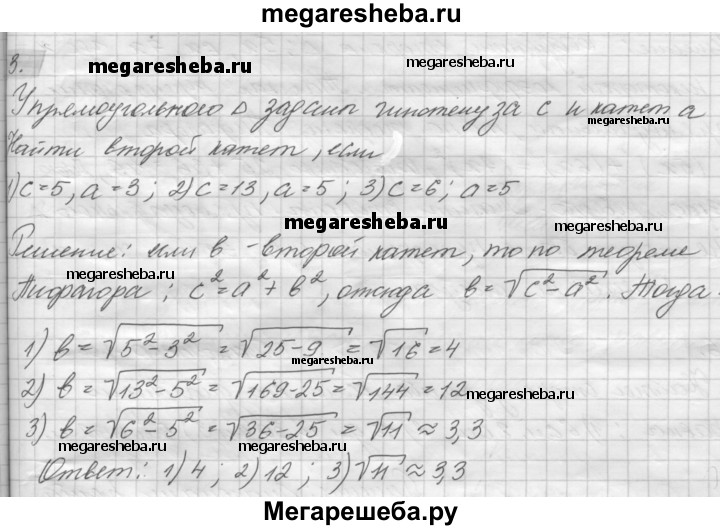 megaresheba.ru
3.
megaresheba.ru
У прямоугольного Δ заданы гипотенуза c и катет a
megaresheba.ru
Найти второй катет, если
1) c=5, a=3; 2) c=13, a=5; 3) c=6; a=5
megaresheba.ru
megaresheba.ru
Решение: если в - второй катет, то по теореме
megaresheba.ru
Пифагора: c²=a²+в², отсюда в=√(c²-a²). Тогда:
1) в=√(5²-3²)=√(25-9)=√16=4
megaresheba.ru
2) в=√(13²-5²)=√(169-25)=√144=12
megaresheba.ru
3) в=√(6²-5²)=√(36-25)=√11≈3,3
megaresheba.ru megaresheba.ru
Ответ: 1) 4; 2) 12; 3) √11≈3,3
Мегарешеба.ру